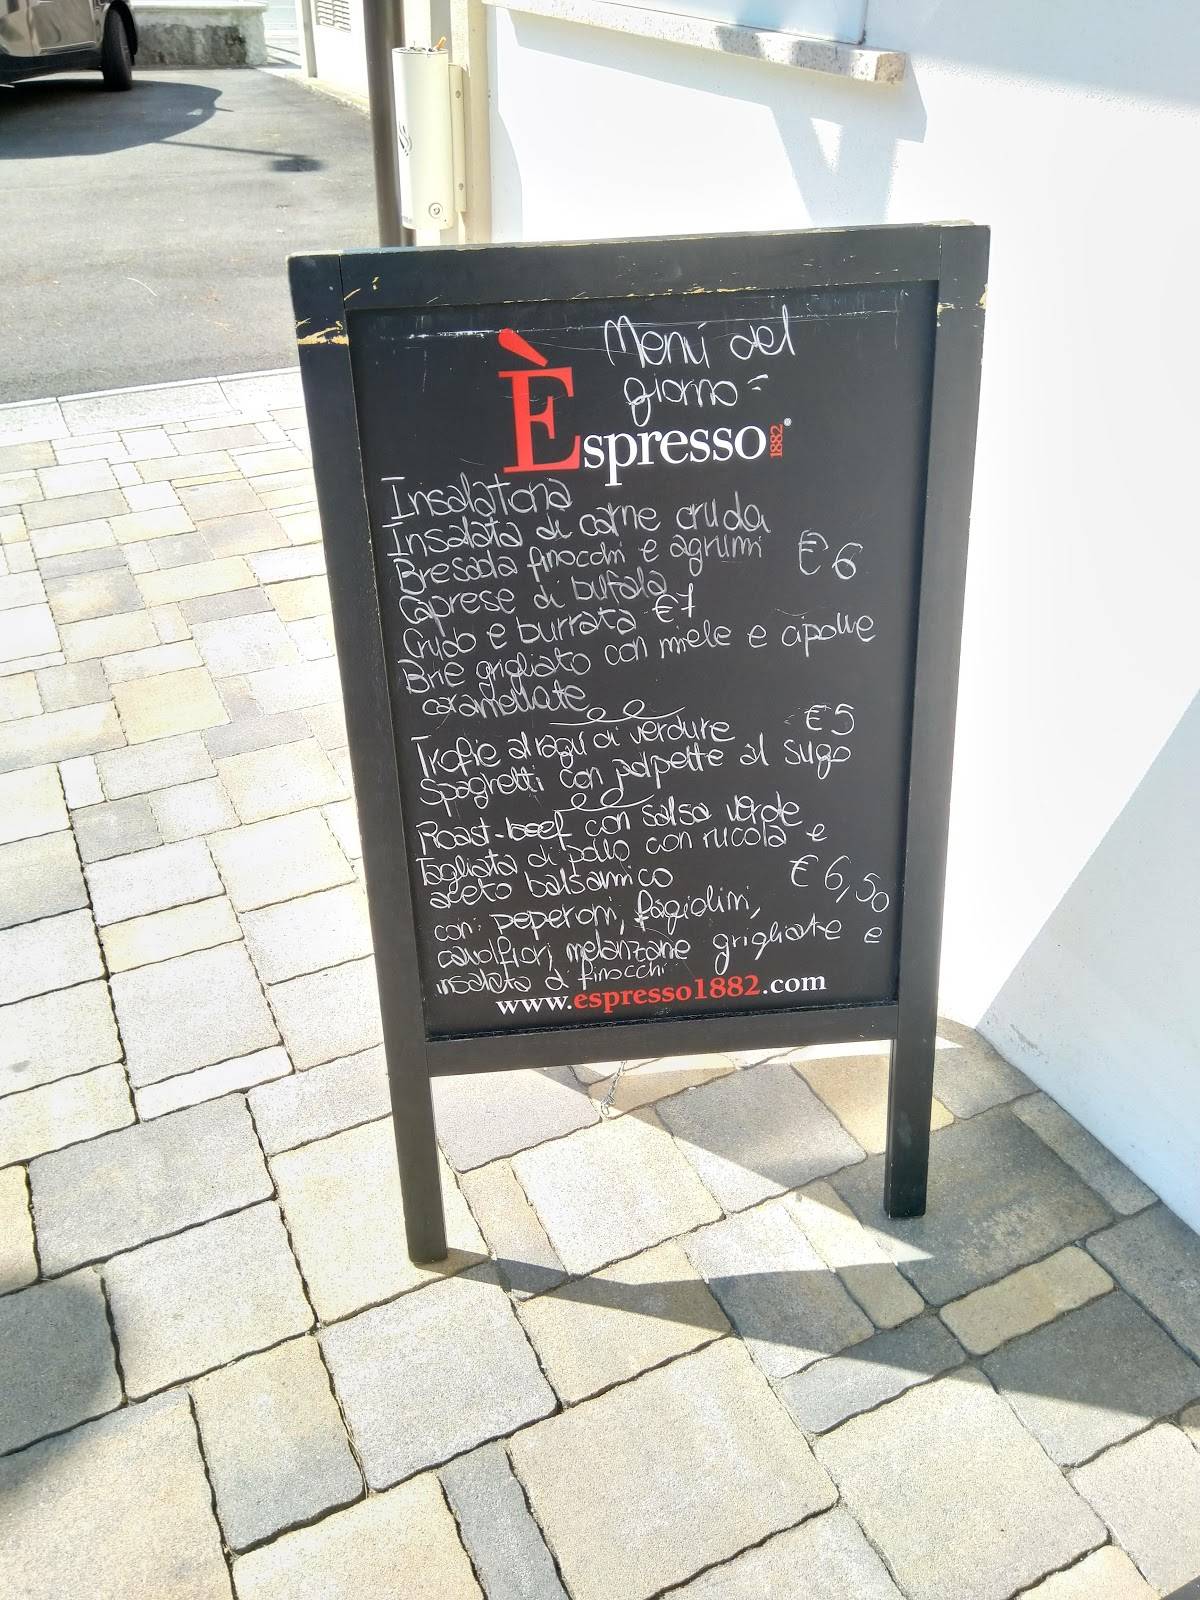 Menú del
giorno =
Èspresso 1882®
Insalatona
Insalata di carne cruda
Bresaola finocchi e agrumi € 6
Caprese di bufala
Crudo e burrata € 7
Brie grigliato con miele e cipolle
caramellate
Trofie al ragù di verdure € 5
Spaghetti con polpette al sugo
Roast-beef con salsa verde
Tagliata di pollo con rucola e
aceto balsamico € 6,50
con: peperoni, fagiolini,
cavolfiori, melanzane grigliate e
insalata di finocchi
www.espresso1882.com